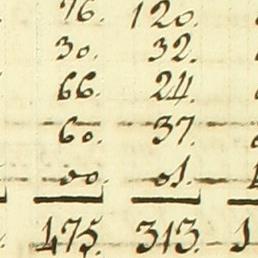 76. 120.
30. 32.
66. 24.
60. 37.
00. 01.
475. 313. 1